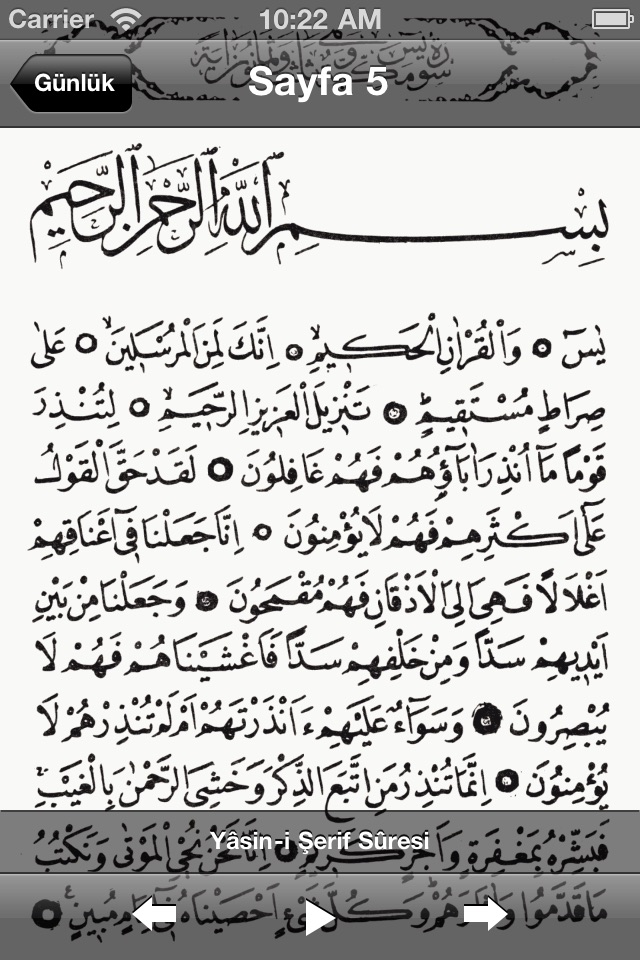 Carrier 10:22 AM
Günlük
Sayfa 5
بِسْمِ اللّٰهِ الرَّحْمٰنِ الرَّحِيمِ
يٰسٓ ۝ وَالْقُرْاٰنِ الْحَكِيمِۙ ۝ اِنَّكَ لَمِنَ الْمُرْسَلِينَۙ ۝ عَلٰى
صِرَاطٍ مُسْتَقِيمٍۜ ۝ تَنْزِيلَ الْعَزِيزِ الرَّحِيمِۙ ۝ لِتُنْذِرَ
قَوْمًا مَٓا اُنْذِرَ اٰبَٓاؤُ۬هُمْ فَهُمْ غَافِلُونَ ۝ لَقَدْ حَقَّ الْقَوْلُ
عَلٰٓى اَكْثَرِهِمْ فَهُمْ لَا يُؤْمِنُونَ ۝ اِنَّا جَعَلْنَا فِٓى اَعْنَاقِهِمْ
اَغْلَالًا فَهِىَ اِلَى الْاَذْقَانِ فَهُمْ مُقْمَحُونَ ۝ وَجَعَلْنَا مِنْ بَيْنِ
اَيْدِيهِمْ سَدًّا وَمِنْ خَلْفِهِمْ سَدًّا فَاَغْشَيْنَاهُمْ فَهُمْ لَا
يُبْصِرُونَ ۝ وَسَوَٓاءٌ عَلَيْهِمْ ءَاَنْذَرْتَهُمْ اَمْ لَمْ تُنْذِرْهُمْ لَا
يُؤْمِنُونَ ۝ اِنَّمَا تُنْذِرُ مَنِ اتَّبَعَ الذِّكْرَ وَخَشِىَ الرَّحْمٰنَ بِالْغَيْبِۚ
فَبَشِّرْهُ بِمَغْفِرَةٍ وَاَجْرٍ كَرِيمٍ ۝ اِنَّا نَحْنُ نُحْيِ الْمَوْتٰى وَنَكْتُبُ
Yâsin-i Şerif Sûresi
مَا قَدَّمُوا وَاٰثَارَهُمْۜ وَكُلَّ شَىْءٍ اَحْصَيْنَاهُ فِٓى اِمَامٍ مُبِينٍ۟ ۝